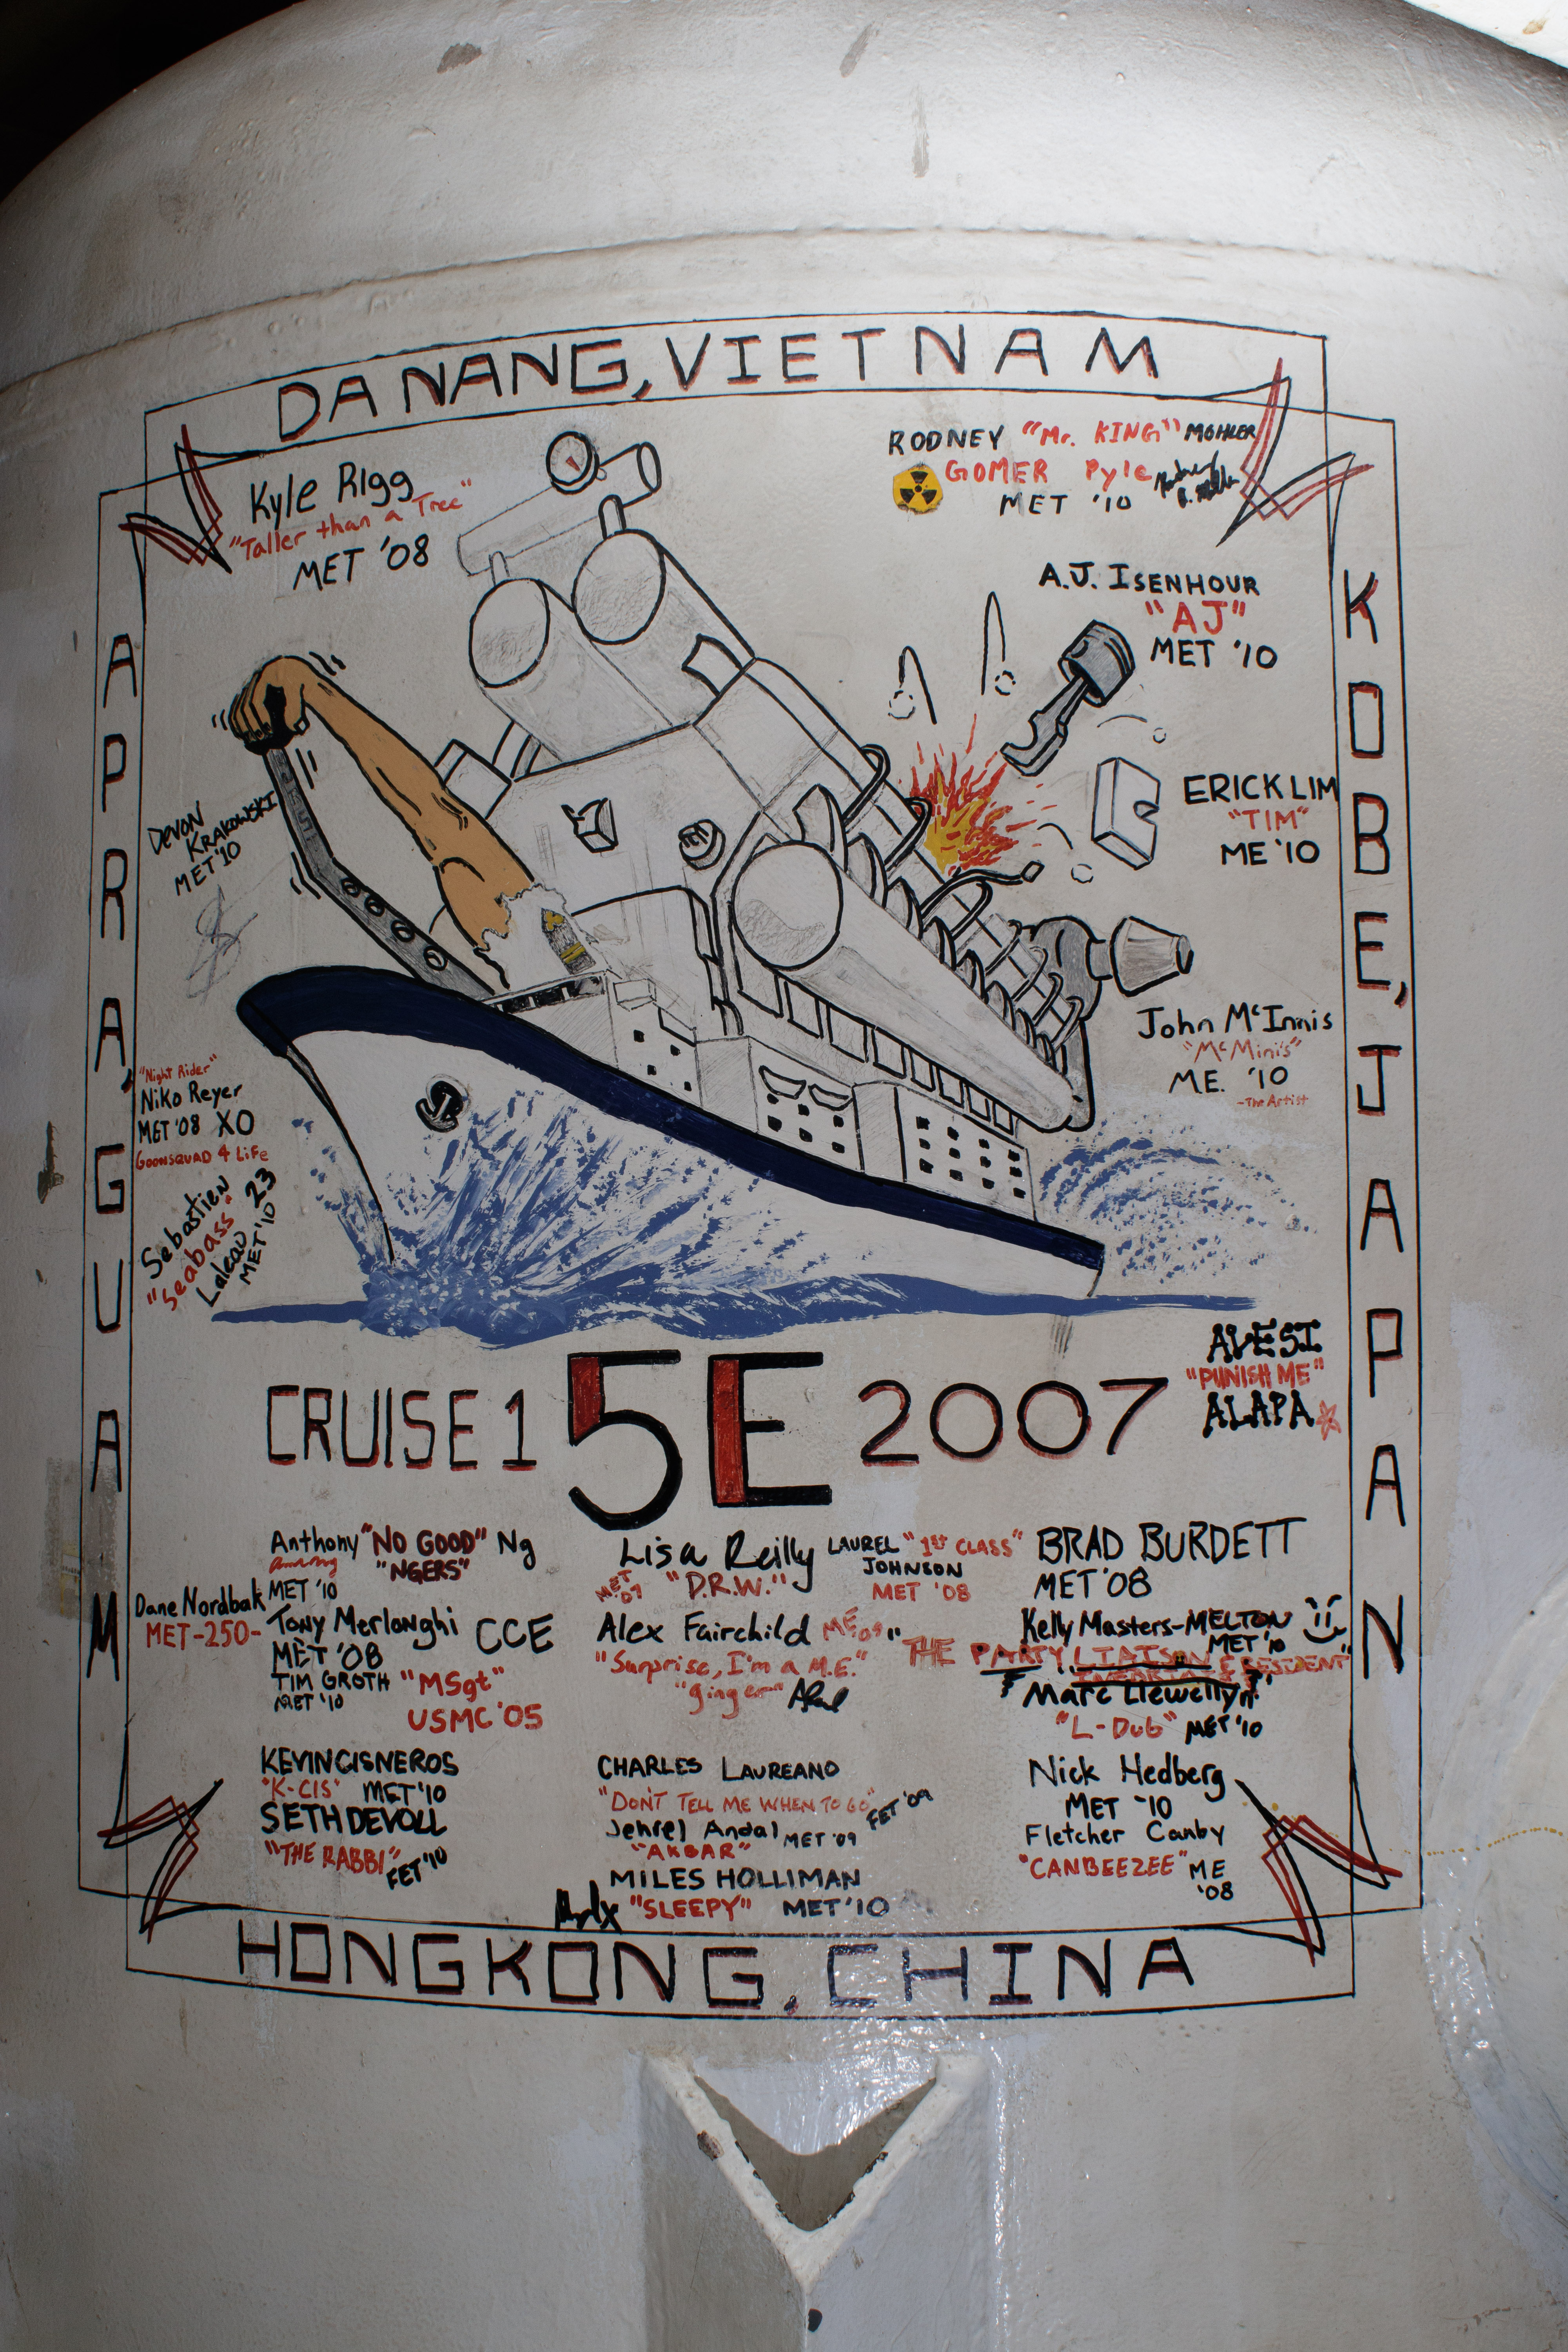 DA NANG, VIETNAM
APRA, GUAM
KOBE, JAPAN
Kyle Rigg
"Taller than a Tree"
MET '08
RODNEY "Mr. KING" MOHLER
GOMER Pyle
MET '10
A.J. ISENHOUR
"AJ"
MET '10
DEVON
KRAKOWSKI
MET '10
ERICK LIM
"TIM"
ME '10
John McInnis
"McMinis"
M.E. '10
-The Artist
"Night Rider"
Niko Reyer
MET '08 XO
GOONSQUAD 4 LiFe
Sebastien 23
"Seabass"
MET '10
AVESI
"PUNISH ME"
ALAPA
CRUISE 1 5E 2007
Anthony "NO GOOD" Ng
"NGERS"
MET '10
Lisa Reilly
MET '07 "D.R.W."
LAUREL "1ST CLASS"
JOHNSON
MET '08
BRAD BURDETT
MET '08
Dane Nordbak
MET-250-
Tony Merlonghi CCE
MET '08
TIM GROTH "MSgt"
MET '10
USMC '05
Alex Fairchild ME '09
"Surprise, I'm a M.E."
"ginger"
Kelly Masters-MELTON
MET '10
"THE PARTY LIAISON
Marc Llewellyn
"L-Dub" MET '10
KEVIN CISNEROS
"K-CIS" MET '10
SETH DEVOLL
"THE RABBI" FET '10
CHARLES LAUREANO
"DON'T TELL ME WHEN TO GO" FET '09
Jehrel Andal MET '09
"AKBAR"
MILES HOLLIMAN
"SLEEPY" MET '10
Nick Hedberg
MET '10
Fletcher Canby
"CANBEEZEE" ME '08
HONG KONG, CHINA